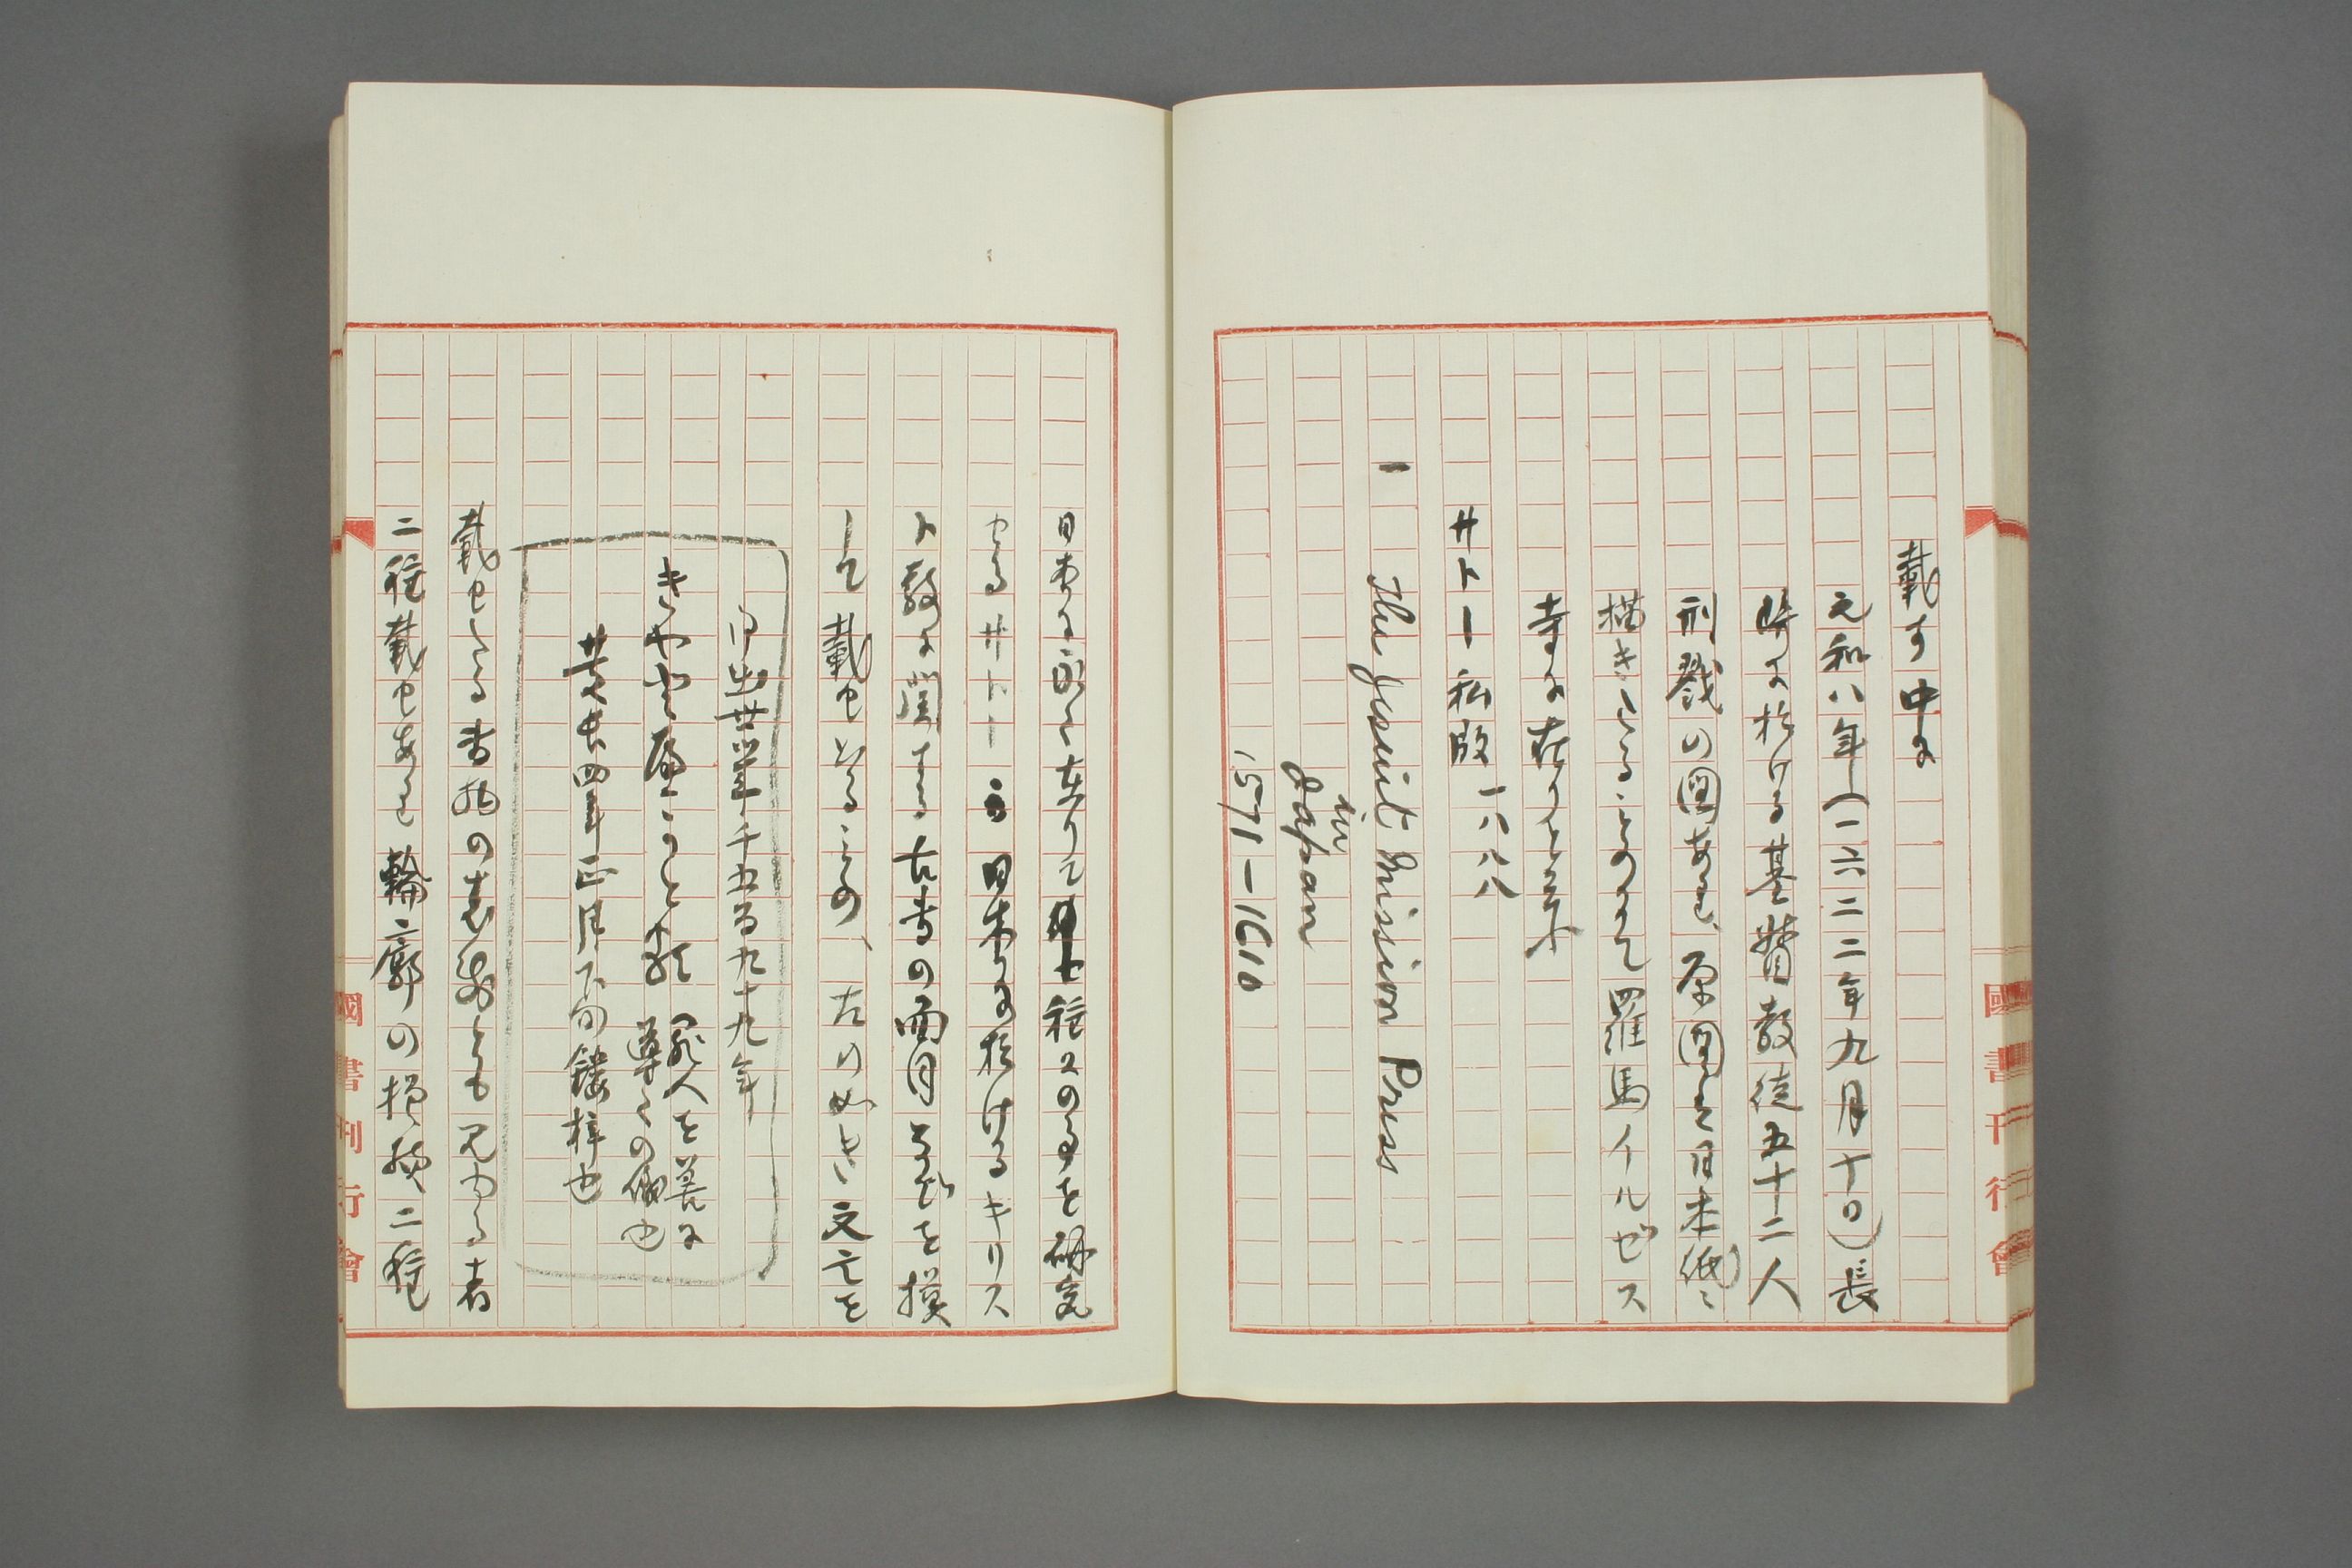 載す中に
元和八年(一六二二年九月十日)長
崎に於ける基督教徒五十二人
刑戮の図あり、原図を日本紙に
描きたるものにて羅馬イルゼス
寺に在りと云ふ
サトー私版 一八八八
一 The Jesuit Mission Press
in
Japan
1571-1610
日本に永く在りて種々のことを研究
せるサトー日本に於けるキリス
ト教に関する古書の面目などを摸
して載せたるもの、左の如き文字を
御出世以来千五百九十九年
きやどぺかどる 罪人を善に
導くの儀也
慶長四年正月下旬鏤梓也
載せたる書物の表紙とも見ゆる者
二種載せあり輪廓の模様二種
國書刊行會
國書刊行會